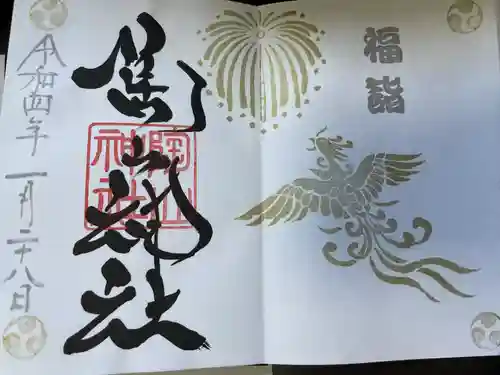 福詣
陶山神社
陶山
神社
令和四年 一月二十八日